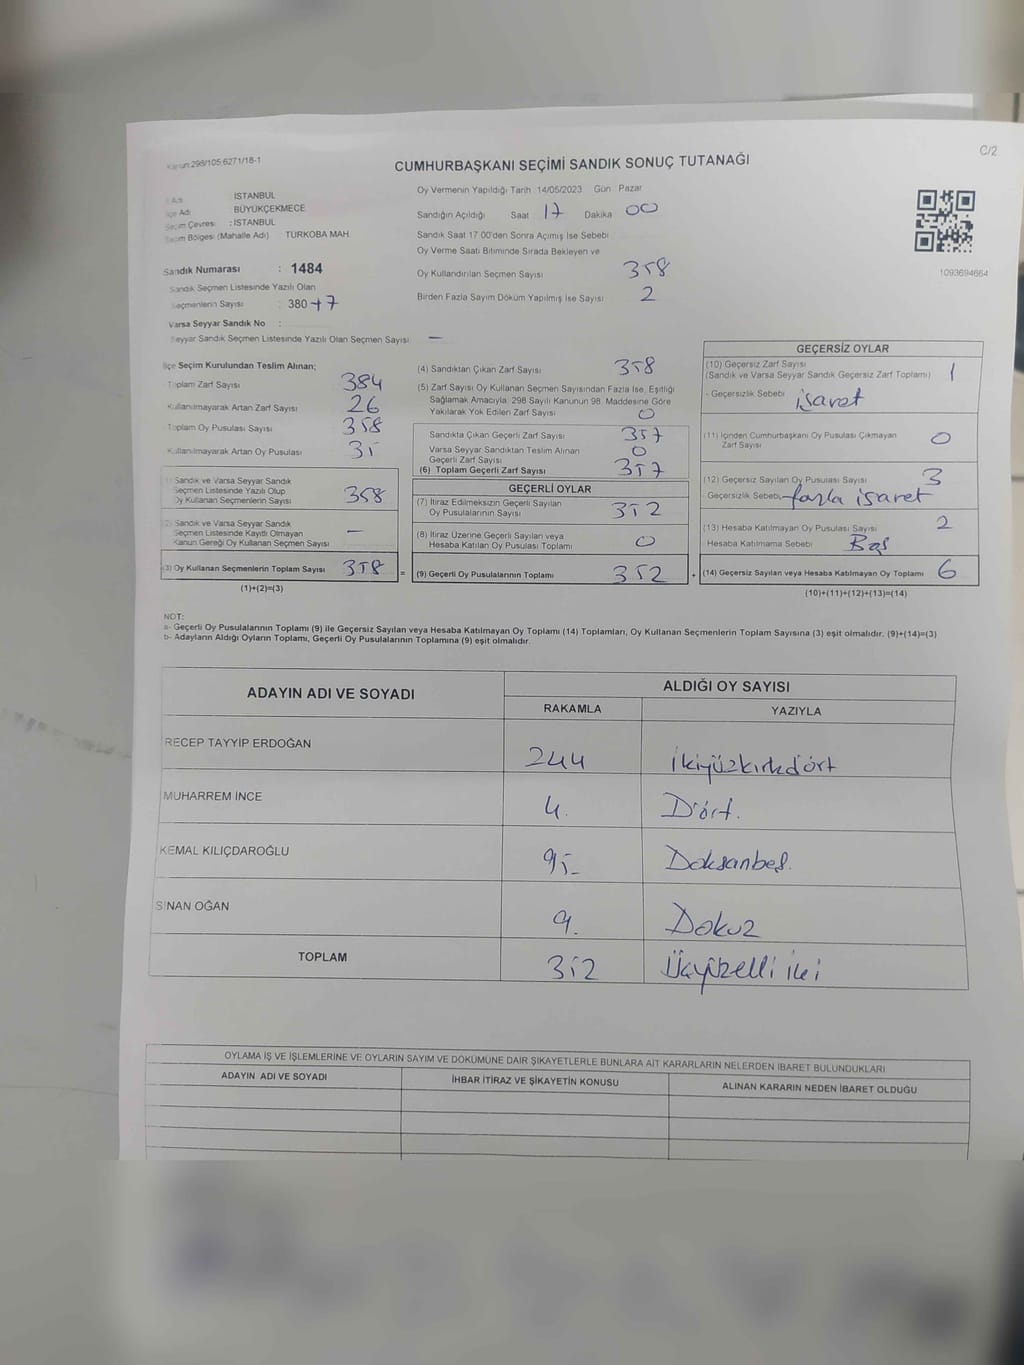 Kanun:298/105;6271/18-1
C/2
CUMHURBAŞKANI SEÇİMİ SANDIK SONUÇ TUTANAĞI
Adı İSTANBUL
İlçe Adı BÜYÜKÇEKMECE
Seçim Çevresi : İSTANBUL
Seçim Bölgesi (Mahalle Adı) TÜRKOBA MAH.
Sandık Numarası : 1484
Sandık Seçmen Listesinde Yazılı Olan
Seçmenlerin Sayısı : 380+7
Varsa Seyyar Sandık No :
Seyyar Sandık Seçmen Listesinde Yazılı Olan Seçmen Sayısı —
Oy Vermenin Yapıldığı Tarih :14/05/2023 Gün Pazar
Sandığın Açıldığı Saat 17 Dakika 00
Sandık Saat 17.00'den Sonra Açımış İse Sebebi
Oy Verme Saati Bitiminde Sırada Bekleyen ve
Oy Kullandırılan Seçmen Sayısı 358
Birden Fazla Sayım Döküm Yapılmış İse Sayısı 2
1093694664
İlçe Seçim Kurulundan Teslim Alınan;
Toplam Zarf Sayısı 384
Kullanılmayarak Artan Zarf Sayısı 26
Toplam Oy Pusulası Sayısı 358
Kullanılmayarak Artan Oy Pusulası
(1) Sandık ve Varsa Seyyar Sandık
Seçmen Listesinde Yazılı Olup
Oy Kullanan Seçmenlerin Sayısı 358
(2) Sandık ve Varsa Seyyar Sandık
Seçmen Listesinde Kayıtlı Olmayan
Kanun Gereği Oy Kullanan Seçmen Sayısı —
(3) Oy Kullanan Seçmenlerin Toplam Sayısı 358 =
(1)+(2)=(3)
(4) Sandıktan Çıkan Zarf Sayısı 358
(5) Zarf Sayısı Oy Kullanan Seçmen Sayısından Fazla İse, Eşitliği
Sağlamak Amacıyla; 298 Sayılı Kanunun 98. Maddesine Göre
Yakılarak Yok Edilen Zarf Sayısı 0
Sandıkta Çıkan Geçerli Zarf Sayısı 357
Varsa Seyyar Sandıktan Teslim Alınan
Geçerli Zarf Sayısı 0
(6) Toplam Geçerli Zarf Sayısı 357
GEÇERLİ OYLAR
(7) İtiraz Edilmeksizin Geçerli Sayılan
Oy Pusulalarının Sayısı 352
(8) İtiraz Üzerine Geçerli Sayılan veya
Hesaba Katılan Oy Pusulası Toplamı 0
(9) Geçerli Oy Pusulalarının Toplamı 352 +
GEÇERSİZ OYLAR
(10) Geçersiz Zarf Sayısı
(Sandık ve Varsa Seyyar Sandık Geçersiz Zarf Toplamı) 1
- Geçersizlik Sebebi : işaret
(11) İçinden Cumhurbaşkanı Oy Pusulası Çıkmayan
Zarf Sayısı 0
(12) Geçersiz Sayılan Oy Pusulası Sayısı 3
- Geçersizlik Sebebi fazla işaret
(13) Hesaba Katılmayan Oy Pusulası Sayısı 2
Hesaba Katılmama Sebebi Boş
(14) Geçersiz Sayılan veya Hesaba Katılmayan Oy Toplamı 6
(10)+(11)+(12)+(13)=(14)
NOT:
a- Geçerli Oy Pusulalarının Toplamı (9) ile Geçersiz Sayılan veya Hesaba Katılmayan Oy Toplamı (14) Toplamları, Oy Kullanan Seçmenlerin Toplam Sayısına (3) eşit olmalıdır. (9)+(14)=(3)
b- Adayların Aldığı Oyların Toplamı, Geçerli Oy Pusulalarının Toplamına (9) eşit olmalıdır.
ADAYIN ADI VE SOYADI ALDIĞI OY SAYISI
RAKAMLA YAZIYLA
RECEP TAYYİP ERDOĞAN 244 İkiyüzkırkdört
MUHARREM İNCE 4. Dört.
KEMAL KILIÇDAROĞLU 95- Doksanbeş.
SİNAN OĞAN 9. Dokuz
TOPLAM 352 Üçyüzelli iki
OYLAMA İŞ VE İŞLEMLERİNE VE OYLARIN SAYIM VE DÖKÜMÜNE DAİR ŞİKAYETLERLE BUNLARA AİT KARARLARIN NELERDEN İBARET BULUNDUKLARI
ADAYIN ADI VE SOYADI İHBAR İTİRAZ VE ŞİKAYETİN KONUSU ALINAN KARARIN NEDEN İBARET OLDUĞU